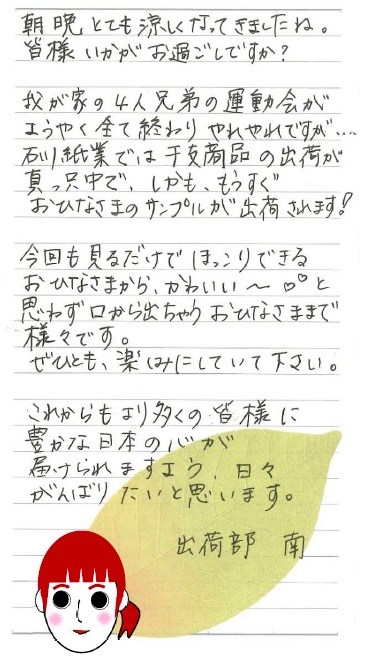 朝晩とても涼しくなってきましたね。
皆様いかがお過ごしですか？
我が家の4人兄弟の運動会が
ようやく全て終わりやれやれですが….
石川紙業では干支商品の出荷が
真っ只中で、しかも、もうすぐ
おひなさまのサンプルが出荷されます!
今回も見るだけでほっこりできる
おひなさまから、かわいい〜♡♡と
思わず口から出ちゃうおひなさままで
様々です。
ぜひとも、楽しみにしていて下さい。
これからもより多くの皆様に
豊かな日本の心が
届けられますよう、日々
がんばりたいと思います。
出荷部 南